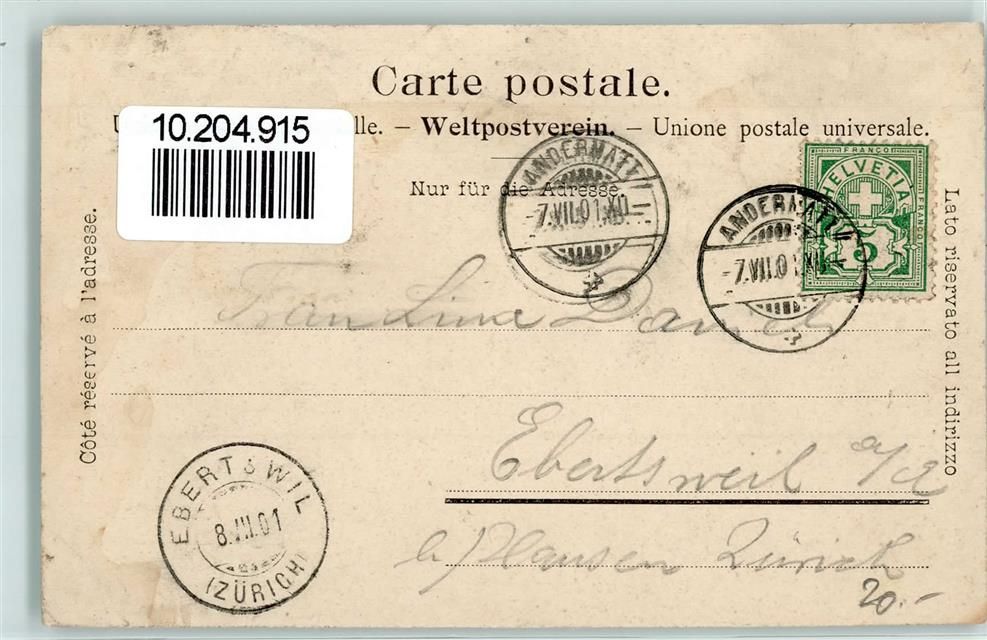 Carte postale.
10.204.915
lle. – Weltpostverein. – Unione postale universale.
Nur für die Adresse.
ANDERMATT
-7.VII.01.XI
FRANCO
HELVETIA
5
FRANCO
ANDERMATT
-7.VII.01.XI
Côté réservé à l'adresse.
Lato riservato all indirizzo
Frau Line
Ebertsweil a/A
b/ Hausen Zürich
EBERTSWIL
8.VII.01
(ZÜRICH)
20.-